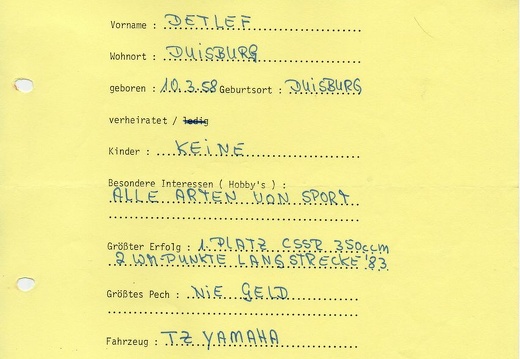 Vorname : DETLEF
Wohnort : DUISBURG
geboren : 10.3.58 Geburtsort : DUISBURG
verheiratet / ledig
Kinder : KEINE
Besondere Interessen ( Hobby's ) :
ALLE ARTEN VON SPORT
Größter Erfolg : 1. PLATZ CSSR 350ccm
2 WM-PUNKTE LANGSTRECKE '83
Größtes Pech : NIE GELD
Fahrzeug : TZ YAMAHA